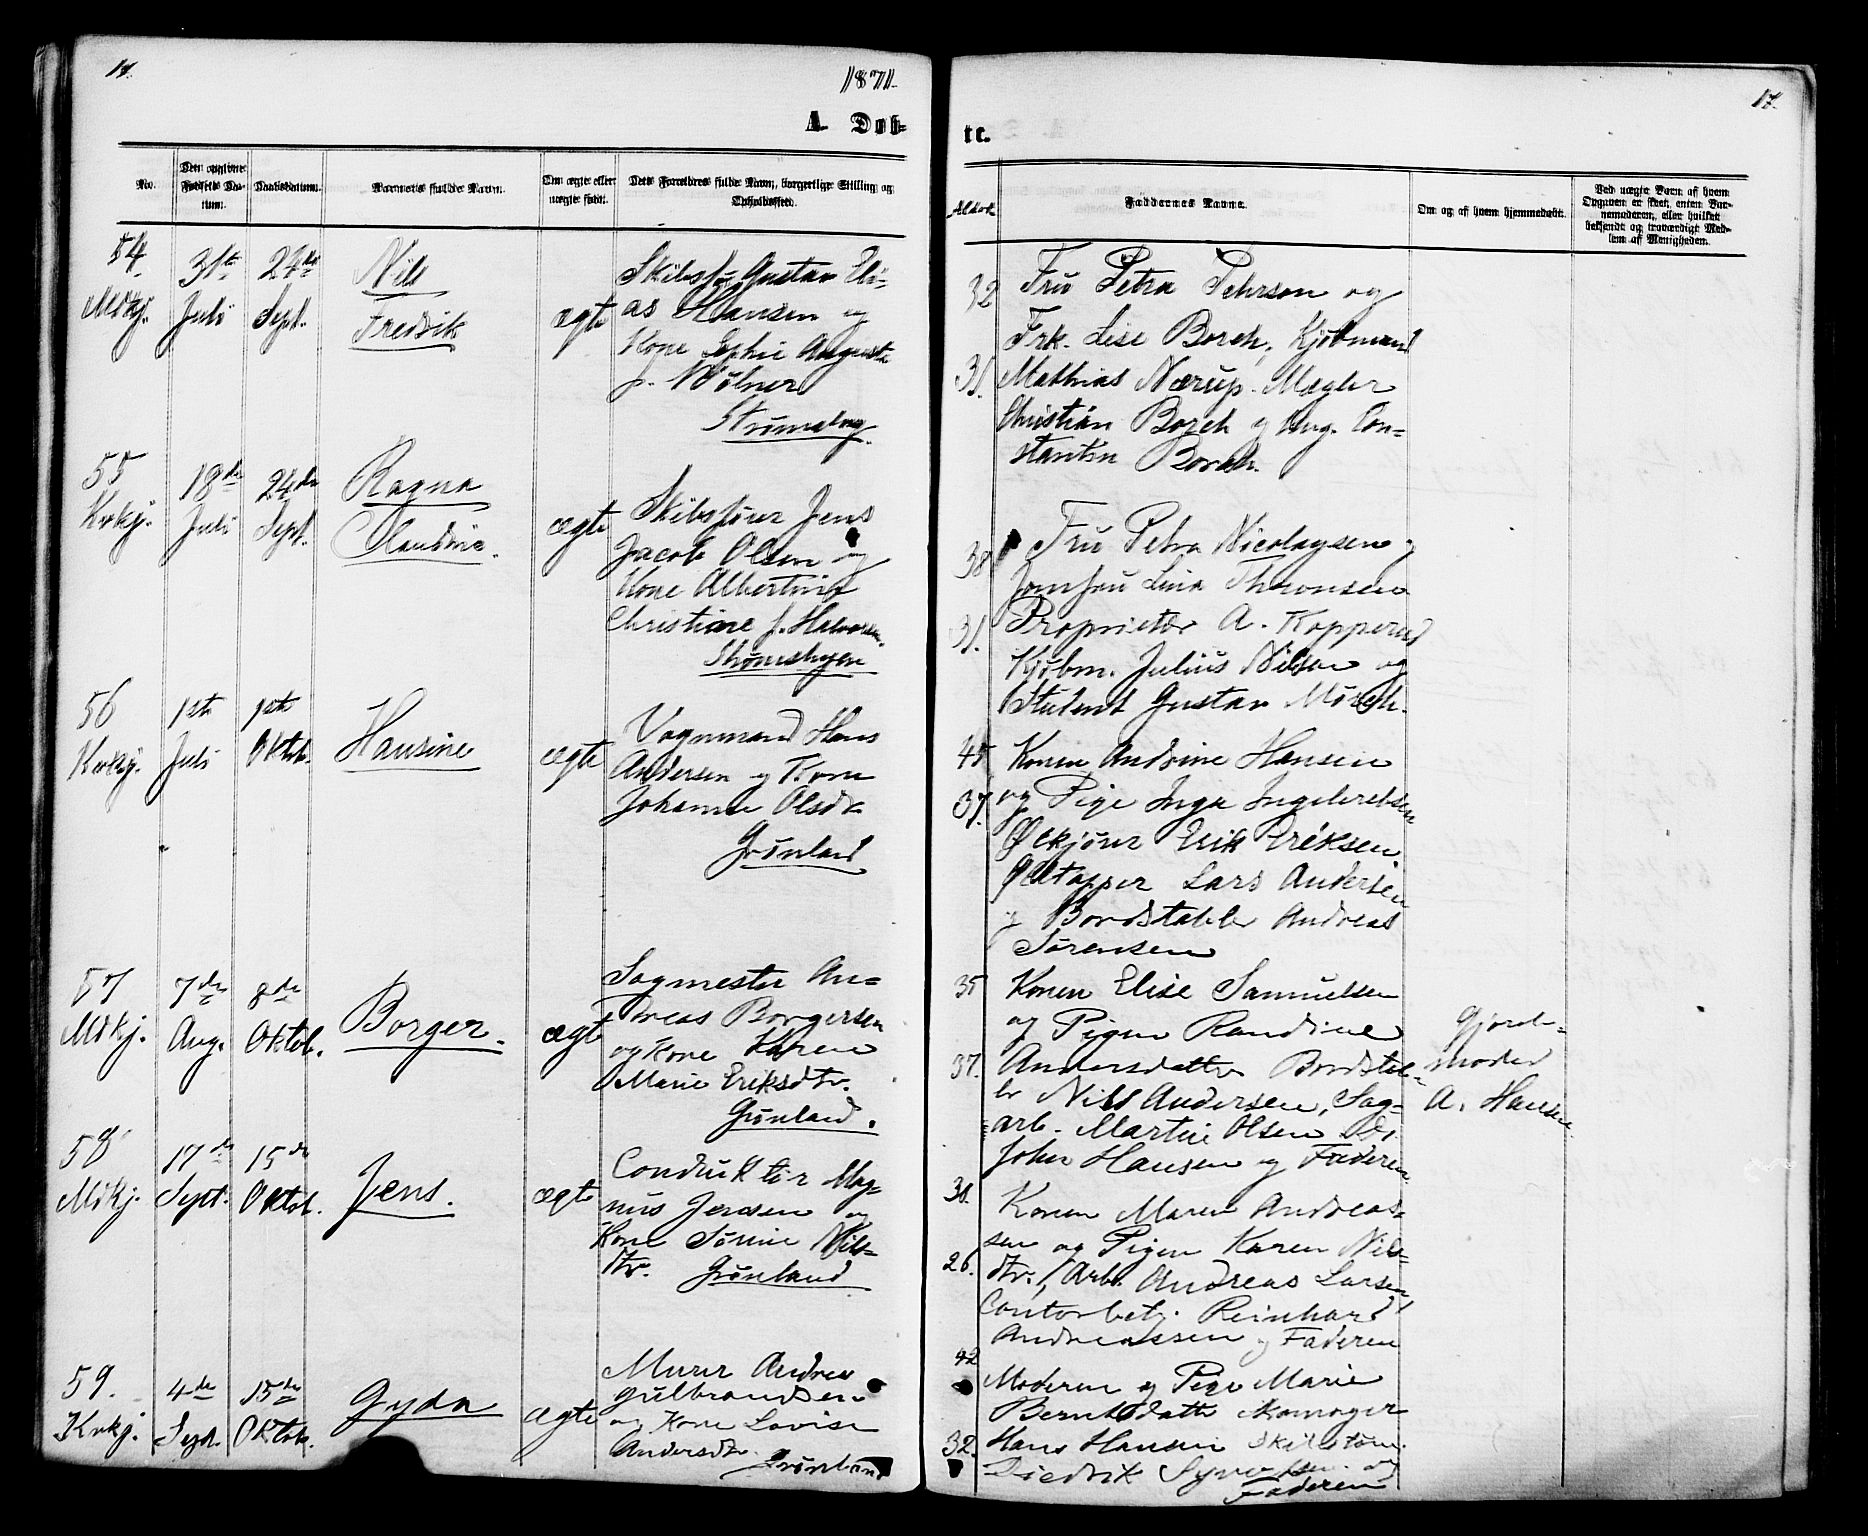 17.
1871.
A. Døb-
No.
Den opgivne Fødsels Datum.
Daabsdatum.
Barnets fulde Navn.
Om ægte eller uægte født.
Dets Forældres fulde Navn, borgerlige Stilling og Opholdssted.
54
Mdkj.
31te
Juli
24de
Sept.
Nils
Fredrik
ægte
Skibsf. Gustav Eli-
as Hansen og
Kone Sophie Auguste
f.
55
Kvkj.
18de
Juli
24de
Sept.
Ragna
ægte
Skibsfører Jens
Jacob Olsen og
Kone Albertine
Christine f. Halvorsen
56
Kvkj.
1ste
Juli
1ste
Oktob.
Hansine
ægte
Vognmand Hans
Andersen og Kone
Johanne Olsdtr
Grønland
57
Mdkj.
7de
Aug.
8de
Oktob.
Borger.
ægte
Sagmester An-
dreas Borgersen
og Kone Karen
Marie Eriksdtr.
Grønland.
58
Mdkj.
17de
Sept.
15de
Oktob.
Jens.
ægte
Conduktør Mag-
nus Jensen og
Kone Sørine Nils-
dtr. Grønland
59.
Kvkj.
4de
Sept.
15de
Oktob.
Gyda
ægte
Murer Andreas
Gulbrandsen
og Kone Lovise
Andersdtr.
Grønland
17.
te.
Alder
Faddernes Navne.
Om og af hvem hjemmedøbt.
Ved uægte Barn af hvem Opgaven er skeet, enten Barnemoderen, eller hvilket bekjendt og troværdigt Medlem af Menigheden.
32
31.
Fru Petra Pehrson og
Frk. Lise Borch, Kjøbmand
Mathias Nærup. Mægler
Christian Borch og Aug. Con-
stantin Borch.
38
31.
Fru Petra Nicolaysen og
Jomfru Lina
Proprietær A. Kopperud
Kjøbm. Julius Nilson og
Student Gustav Mørch.
45
37.
Konen Andrine Hansen
og Pige Inga Ingebretsen
Ølkjører Erik Eriksen
Øltapper Lars Andersen
og Bordstabler Andreas
Sørensen
35
37.
Konen Elise Samuelsen
og Pigen Randine
Andersdatter Bordstab-
ler Nils Andersen, Sag-
arb. Martin Olsen Do.
Johan Hansen og Faderen
Gjorde-
moder
A. Hansen.
31.
26.
Konen Maren Andreas-
sen og Pigen Karen Nils-
dtr., Arb. Andreas Larsen,
Contorbetj. Reinhard
Andreassen og Faderen
42
32.
Moderen og Pige Marie
Berntsdatter Skomager
Hans Hansen Skibstøm.
Diedrik og
Faderen